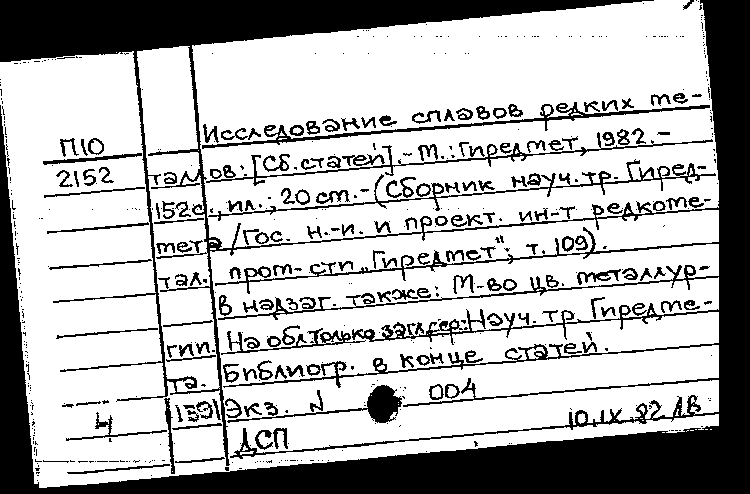 Исследование сплавов редких ме-
П10
2152 таллов: [Сб. статей]. - М.: Гиредмет, 1982. -
152с., ил.; 20 см. - (Сборник науч. тр. Гиред-
мета / Гос. н.-и. и проект. ин-т редкоме-
тал. пром-сти „Гиредмет"; т. 109).
В надзаг. также: М-во цв. металлур-
гии. На обл. только загл. сер.: Науч. тр. Гиредме-
та. Библиогр. в конце статей.
1591 Экз. N 004
4 ДСП 10.IX.82 ЛВ